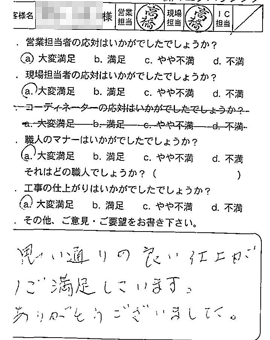 客様名 様 営業担当 高橋 現場担当 高橋 IC担当
. 営業担当者の応対はいかがでしたでしょうか?
a. 大変満足 b. 満足 c. やや不満 d. 不満
. 現場担当者の応対はいかがでしたでしょうか?
a. 大変満足 b. 満足 c. やや不満 d. 不満
. コーディネーターの応対はいかがでしたでしょうか?
a. 大変満足 b. 満足 c. やや不満 d. 不満
. 職人のマナーはいかがでしたでしょうか?
a. 大変満足 b. 満足 c. やや不満 d. 不満
それはどの職人でしょうか? ( )
. 工事の仕上がりはいかがでしたでしょうか?
a. 大変満足 b. 満足 c. やや不満 d. 不満
. その他、ご意見・ご要望をお書き下さい。
思い通りの良い仕上が
満足しています。
ありがとうございました。